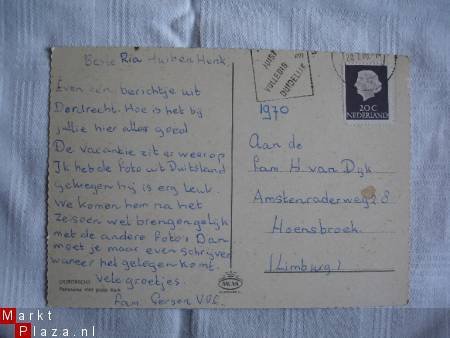 Beste Ria Huib en Henk
Even een berichtje uit
Dordrecht. Hoe is het bij
jullie hier alles goed
De vacantie zit er weer op
Ik heb de foto uit Duitsland
gekregen hij is erg leuk
We komen hem na het
seizoen wel brengen gelijk
met de andere foto's Dan
moet je maar even schrijven
waneer het gelegen komt.
Vele groetjes
Fam.
JUIST
VOLLEDIG
DUIDELIJK
20 C
NEDERLAND
1970
Aan de
Fam H. van Dyk
Amstenraderweg 28
Hoensbroek
(Limburg)
DORDRECHT
Panorama met grote Kerk
MarktPlaza.nl